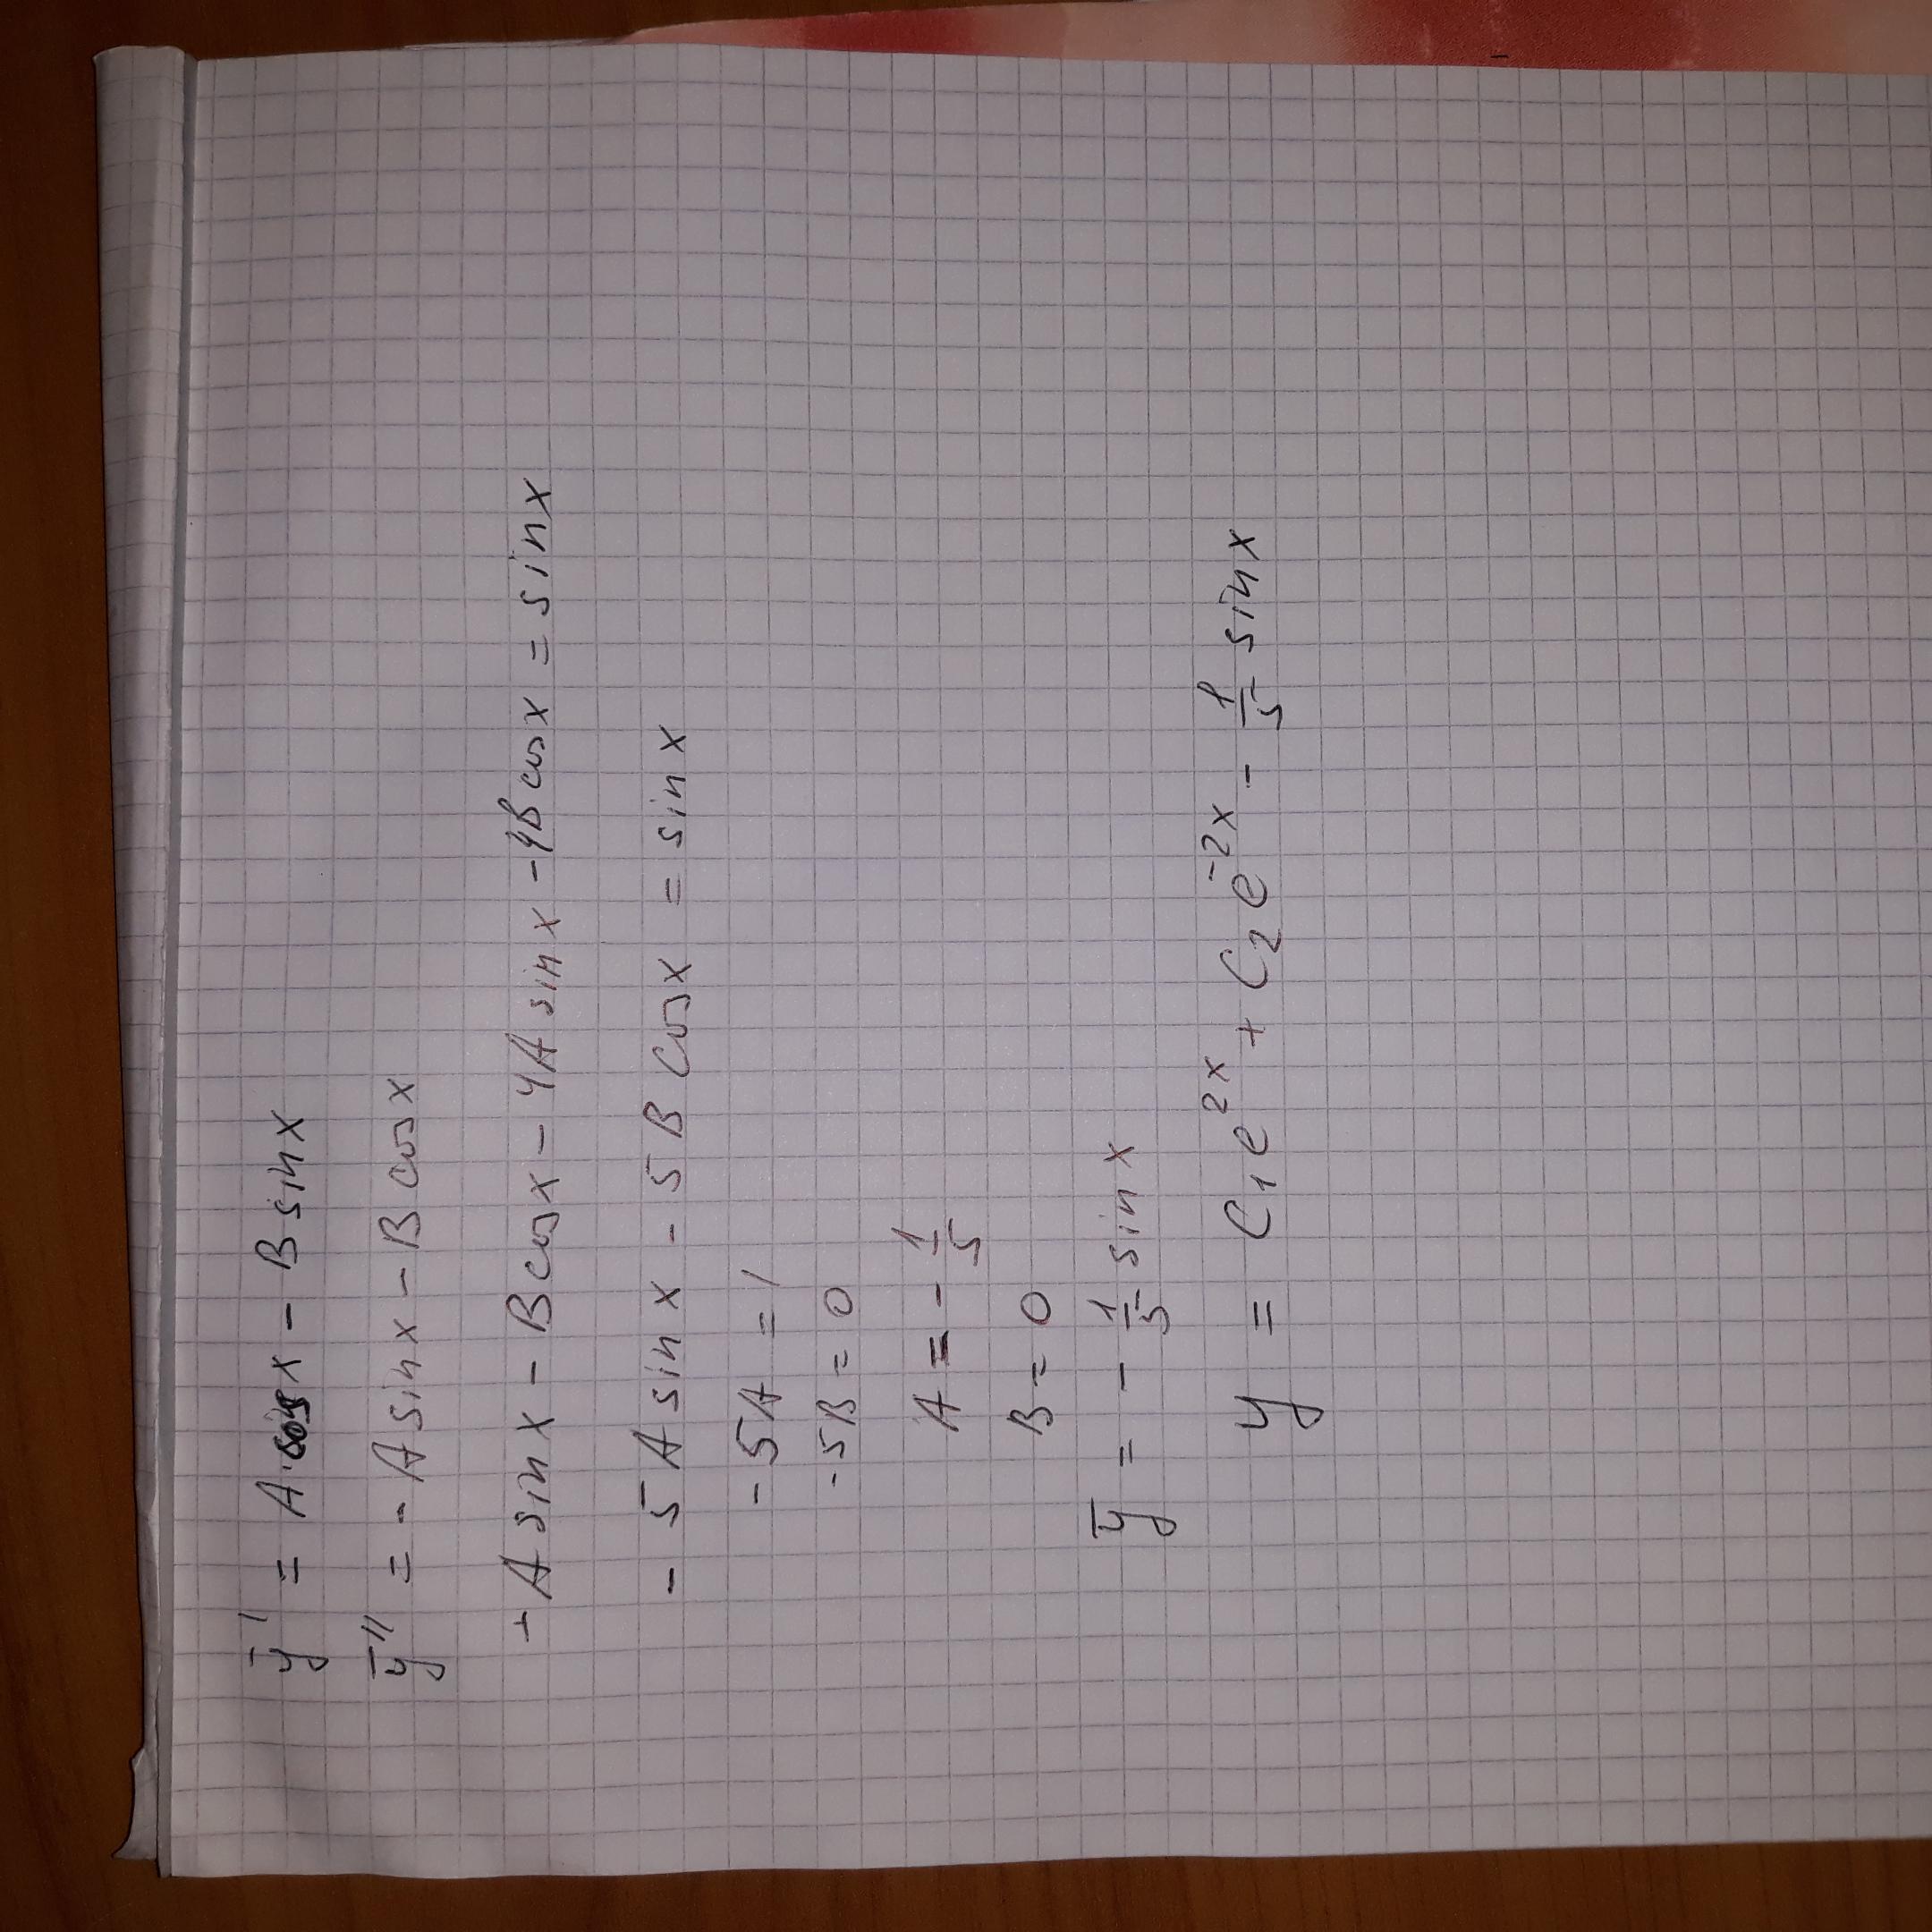 ȳ' = A cos x - B sin x
ȳ'' = - A sin x - B cos x
- A sin x - B cos x - 4A sin x - 4B cos x = sin x
- 5A sin x - 5B cos x = sin x
- 5A = 1
- 5B = 0
A = - 1/5
B = 0
ȳ = - 1/5 sin x
y = C₁e²ˣ + C₂e⁻²ˣ - 1/5 sin x